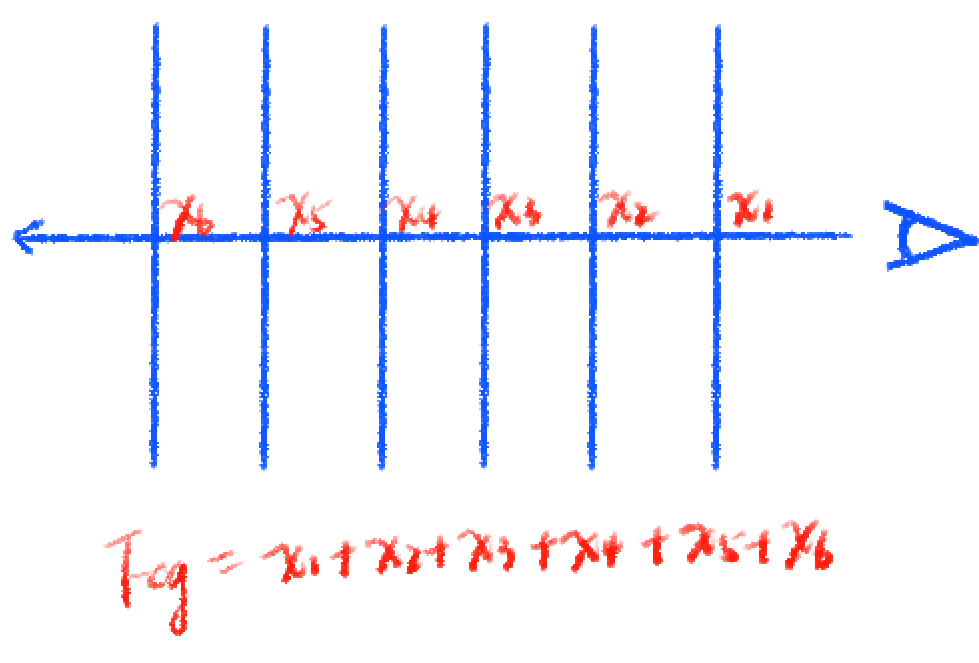 x6 x5 x4 x3 x2 x1
Tcg = x1 + x2 + x3 + x4 + x5 + x6